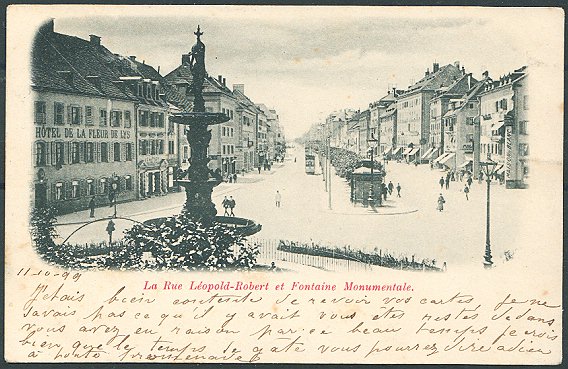 HÔTEL DE LA FLEUR DE LYS
La Rue Léopold-Robert et Fontaine Monumentale.
11-10-99
J'etais bien contente de revoir vos cartes je ne
savais pas ce qu'il y avait vous êtes restes dedans
vous avez eu raison par ce beau temps je crois
bien que le temps de gâté vous pourrez dire adieu
a toute promenade